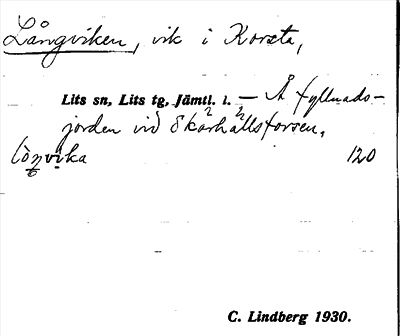 Långviken, vik i Korsta,
Lits sn, Lits tg, Jämtl. l. — Å fyllnads-
jorden vid Skärhällsforsen.
lòŋvika 120
C. Lindberg 1930.